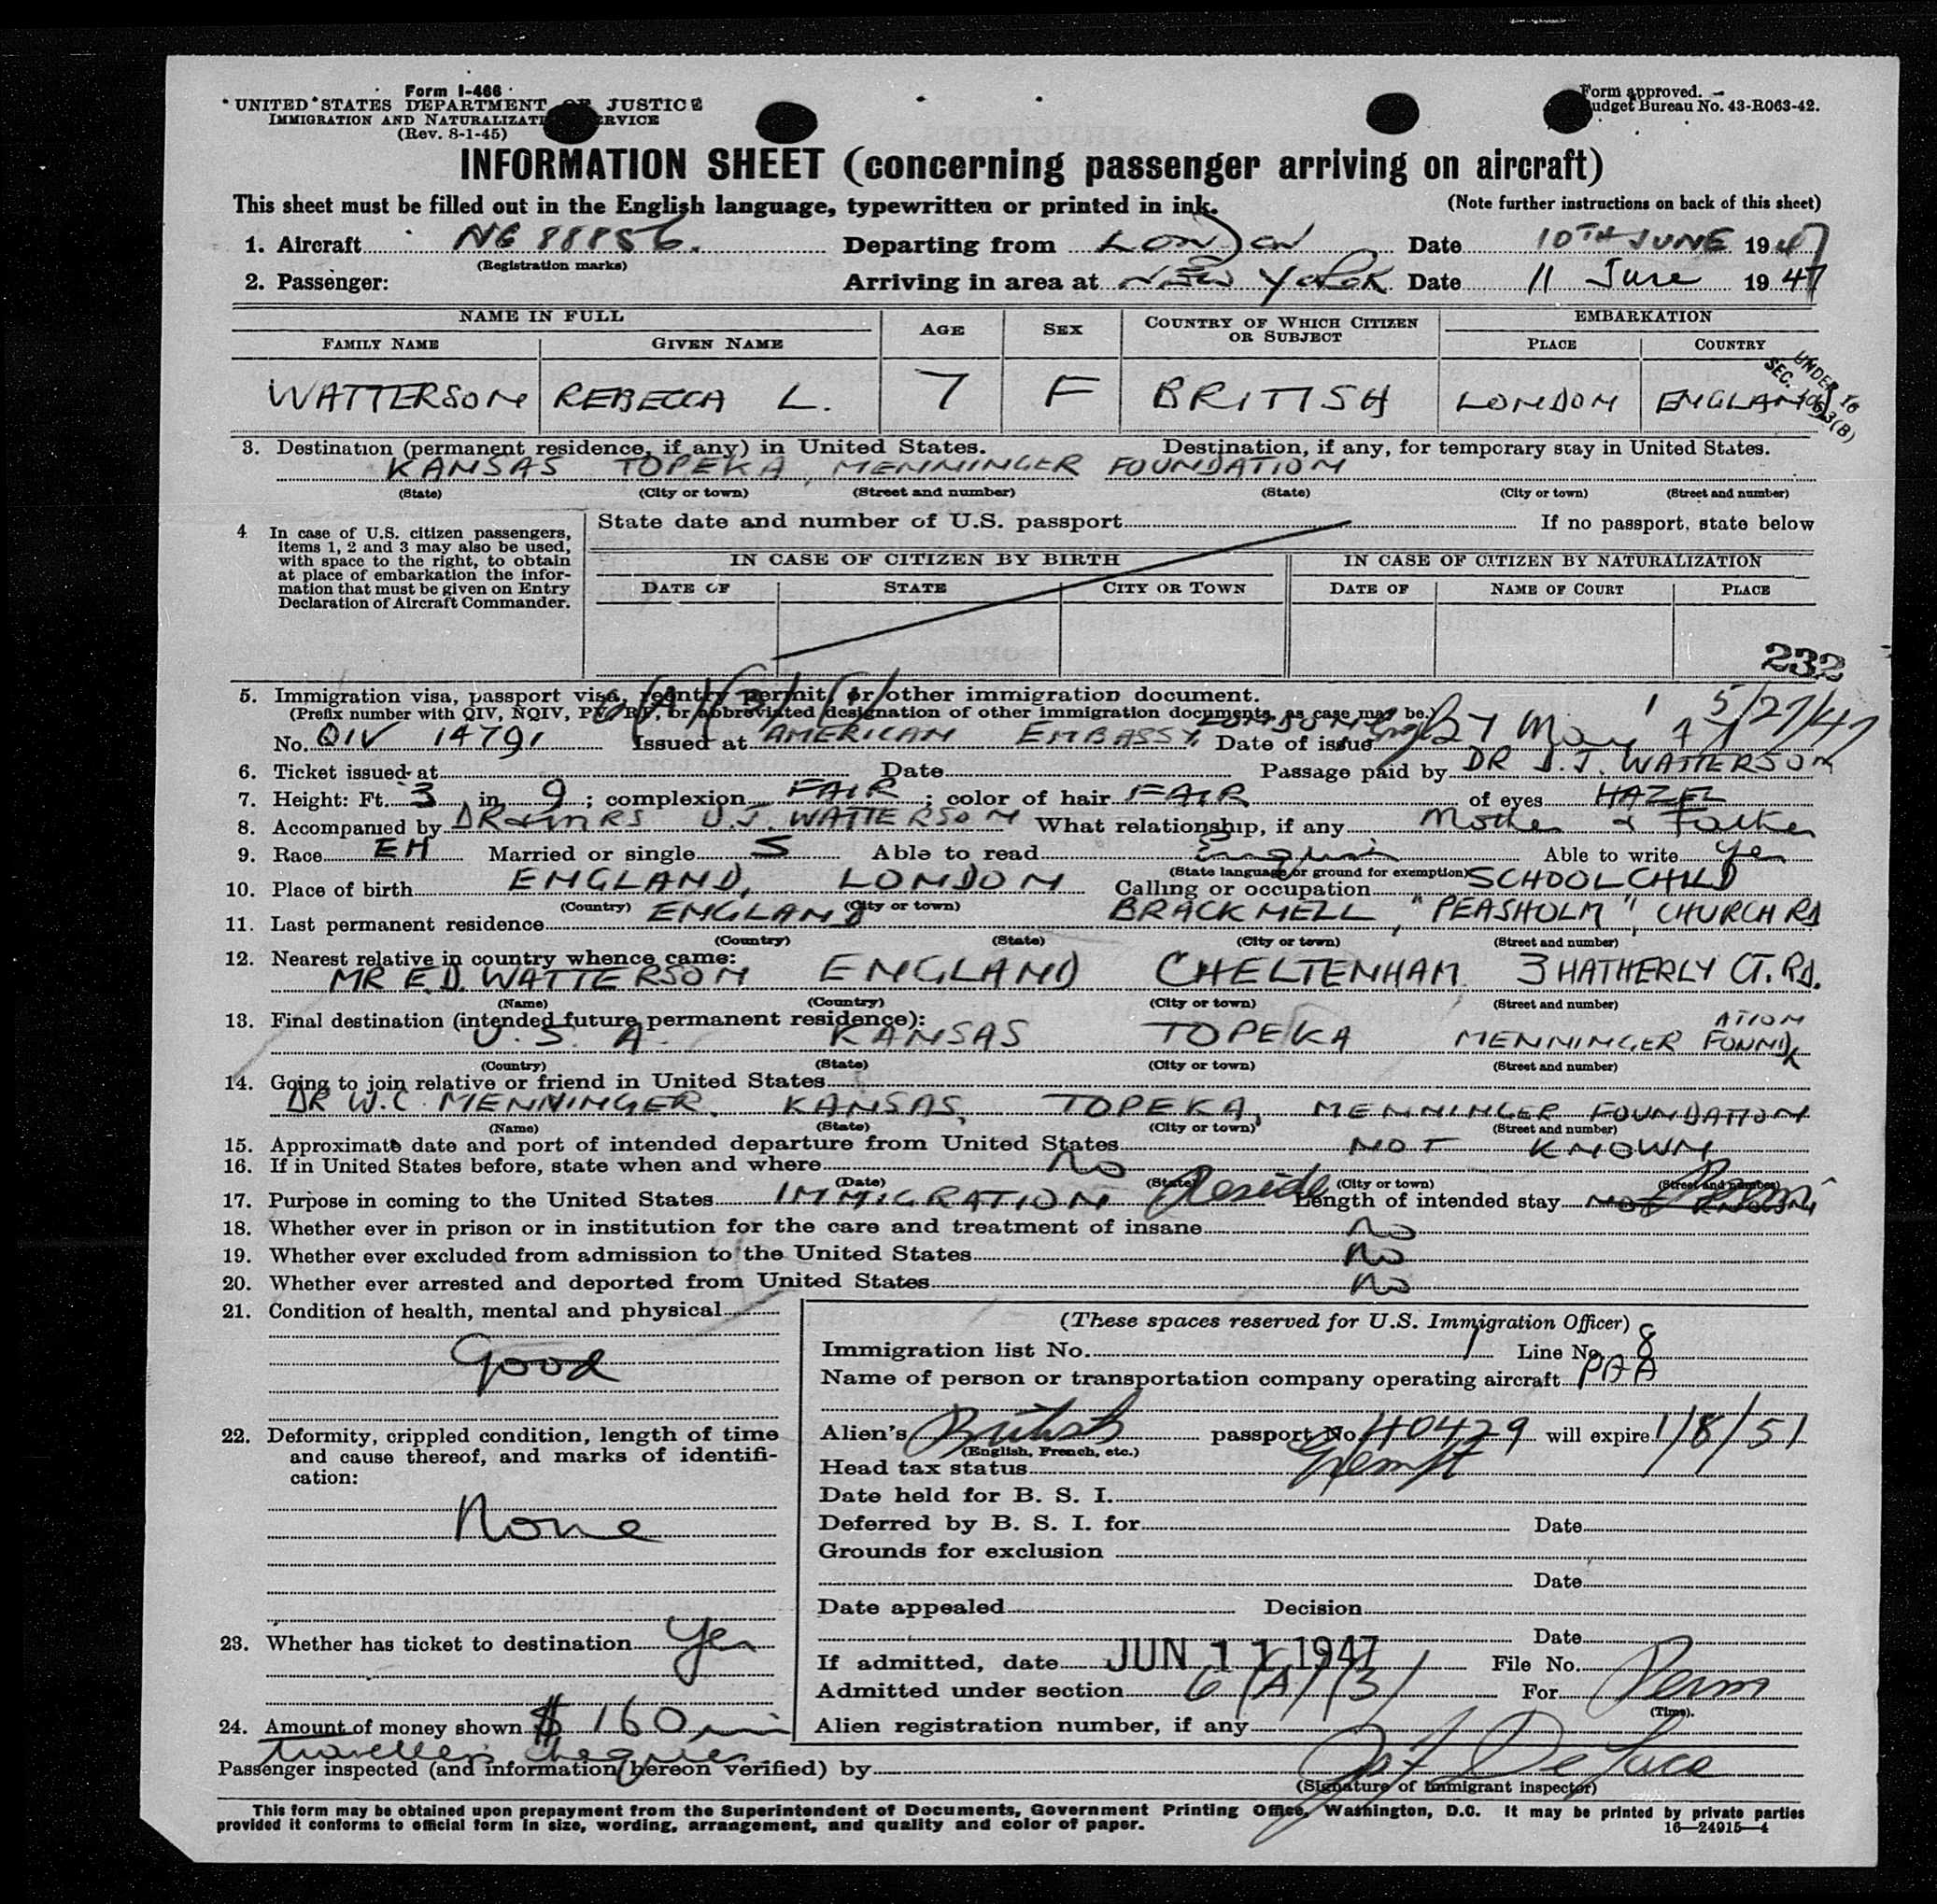 Form I-466
UNITED STATES DEPARTMENT OF JUSTICE
IMMIGRATION AND NATURALIZATION SERVICE
(Rev. 8-1-45)
Form approved.
Budget Bureau No. 43-R063-42.
INFORMATION SHEET (concerning passenger arriving on aircraft)
This sheet must be filled out in the English language, typewritten or printed in ink. (Note further instructions on back of this sheet)
1. Aircraft NC 88856. Departing from LONDON Date 10TH JUNE 1947
(Registration marks)
2. Passenger: Arriving in area at NEW YORK Date 11 June 1947
NAME IN FULL AGE SEX COUNTRY OF WHICH CITIZEN OR SUBJECT EMBARKATION
FAMILY NAME GIVEN NAME PLACE COUNTRY
WATTERSON REBECCA L. 7 F BRITISH LONDON ENGLAND
UNDER 16
SEC.
3. Destination (permanent residence, if any) in United States. Destination, if any, for temporary stay in United States.
KANSAS TOPEKA, MENNINGER FOUNDATION
(State) (City or town) (Street and number) (State) (City or town) (Street and number)
4 In case of U.S. citizen passengers, items 1, 2 and 3 may also be used, with space to the right, to obtain at place of embarkation the information that must be given on Entry Declaration of Aircraft Commander.
State date and number of U.S. passport If no passport, state below
IN CASE OF CITIZEN BY BIRTH IN CASE OF CITIZEN BY NATURALIZATION
DATE OF STATE CITY OR TOWN DATE OF NAME OF COURT PLACE
232
5. Immigration visa, passport visa, reentry permit, or other immigration document.
(Prefix number with QIV, NQIV, PV, RP, or abbreviated designation of other immigration documents, as case may be.) 5/27/47
No. QIV 14791 Issued at AMERICAN EMBASSY, LONDON Date of issue 27 May 47
6. Ticket issued at Date Passage paid by DR D.J. WATTERSON
7. Height: Ft. 3 in 9; complexion FAIR; color of hair FAIR of eyes HAZEL
8. Accompanied by DR & MRS D.J. WATTERSON What relationship, if any Mother & Father
9. Race EH Married or single S Able to read English Able to write Yes
(State language or ground for exemption)
10. Place of birth ENGLAND, LONDON Calling or occupation SCHOOLCHILD
(Country) (City or town)
11. Last permanent residence ENGLAND BRACKNELL, "PEASHOLM", CHURCH RD
(Country) (State) (City or town) (Street and number)
12. Nearest relative in country whence came:
MR E.D. WATTERSON ENGLAND CHELTENHAM 3 HATHERLY CT. RD.
(Name) (Country) (City or town) (Street and number)
13. Final destination (intended future permanent residence):
U.S.A. KANSAS TOPEKA MENNINGER FOUNDATION
(Country) (State) (City or town) (Street and number)
14. Going to join relative or friend in United States
DR W.C. MENNINGER. KANSAS, TOPEKA, MENNINGER FOUNDATION
(Name) (State) (City or town) (Street and number)
15. Approximate date and port of intended departure from United States NOT KNOWN
16. If in United States before, state when and where No
(Date) (State) (City or town) (Street and number)
17. Purpose in coming to the United States IMMIGRATION Reside Length of intended stay Perm
18. Whether ever in prison or in institution for the care and treatment of insane No
19. Whether ever excluded from admission to the United States No
20. Whether ever arrested and deported from United States No
21. Condition of health, mental and physical
Good
22. Deformity, crippled condition, length of time and cause thereof, and marks of identification:
None
23. Whether has ticket to destination Yes
24. Amount of money shown $160 in
travellers cheques
(These spaces reserved for U.S. Immigration Officer)
Immigration list No. 1 Line No. 8
Name of person or transportation company operating aircraft PAA
Alien's British passport No. 140429 will expire 1/8/51
(English, French, etc.)
Head tax status Exempt
Date held for B. S. I.
Deferred by B. S. I. for Date
Grounds for exclusion
Date
Date appealed Decision
Date
If admitted, date JUN 11 1947 File No.
Admitted under section 6(A)(3) For Perm
(Time).
Alien registration number, if any
Passenger inspected (and information hereon verified) by
(Signature of immigrant inspector)
This form may be obtained upon prepayment from the Superintendent of Documents, Government Printing Office, Washington, D.C. It may be printed by private parties
provided it conforms to official form in size, wording, arrangement, and quality and color of paper. 16—24915—4